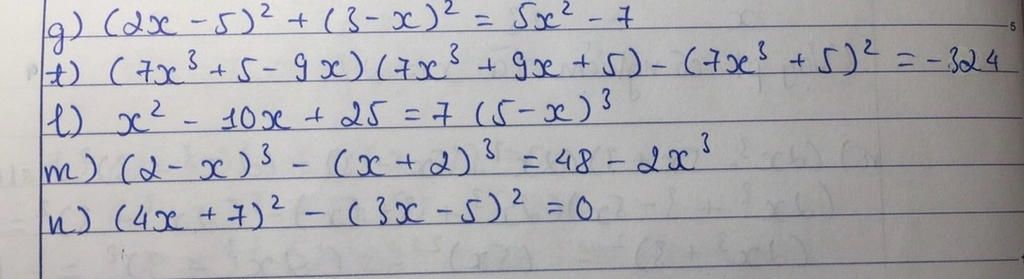 g) (2x - 5)² + (3 - x)² = 5x² - 7
t) (7x³ + 5 - 9x)(7x³ + 9x + 5) - (7x³ + 5)² = -324
l) x² - 10x + 25 = 7 (5 - x)³
m) (2 - x)³ - (x + 2)³ = 48 - 2x³
n) (4x + 7)² - (3x - 5)² = 0